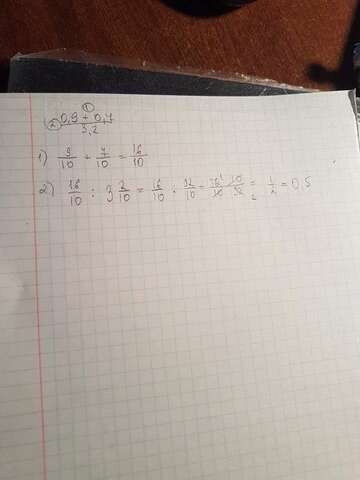 ①
② (0,9 + 0,7) / 3,2
1) 9/10 + 7/10 = 16/10
2) 16/10 : 3 2/10 = 16/10 : 32/10 = 16¹/10 · 10/32₂ = 1/2 = 0,5